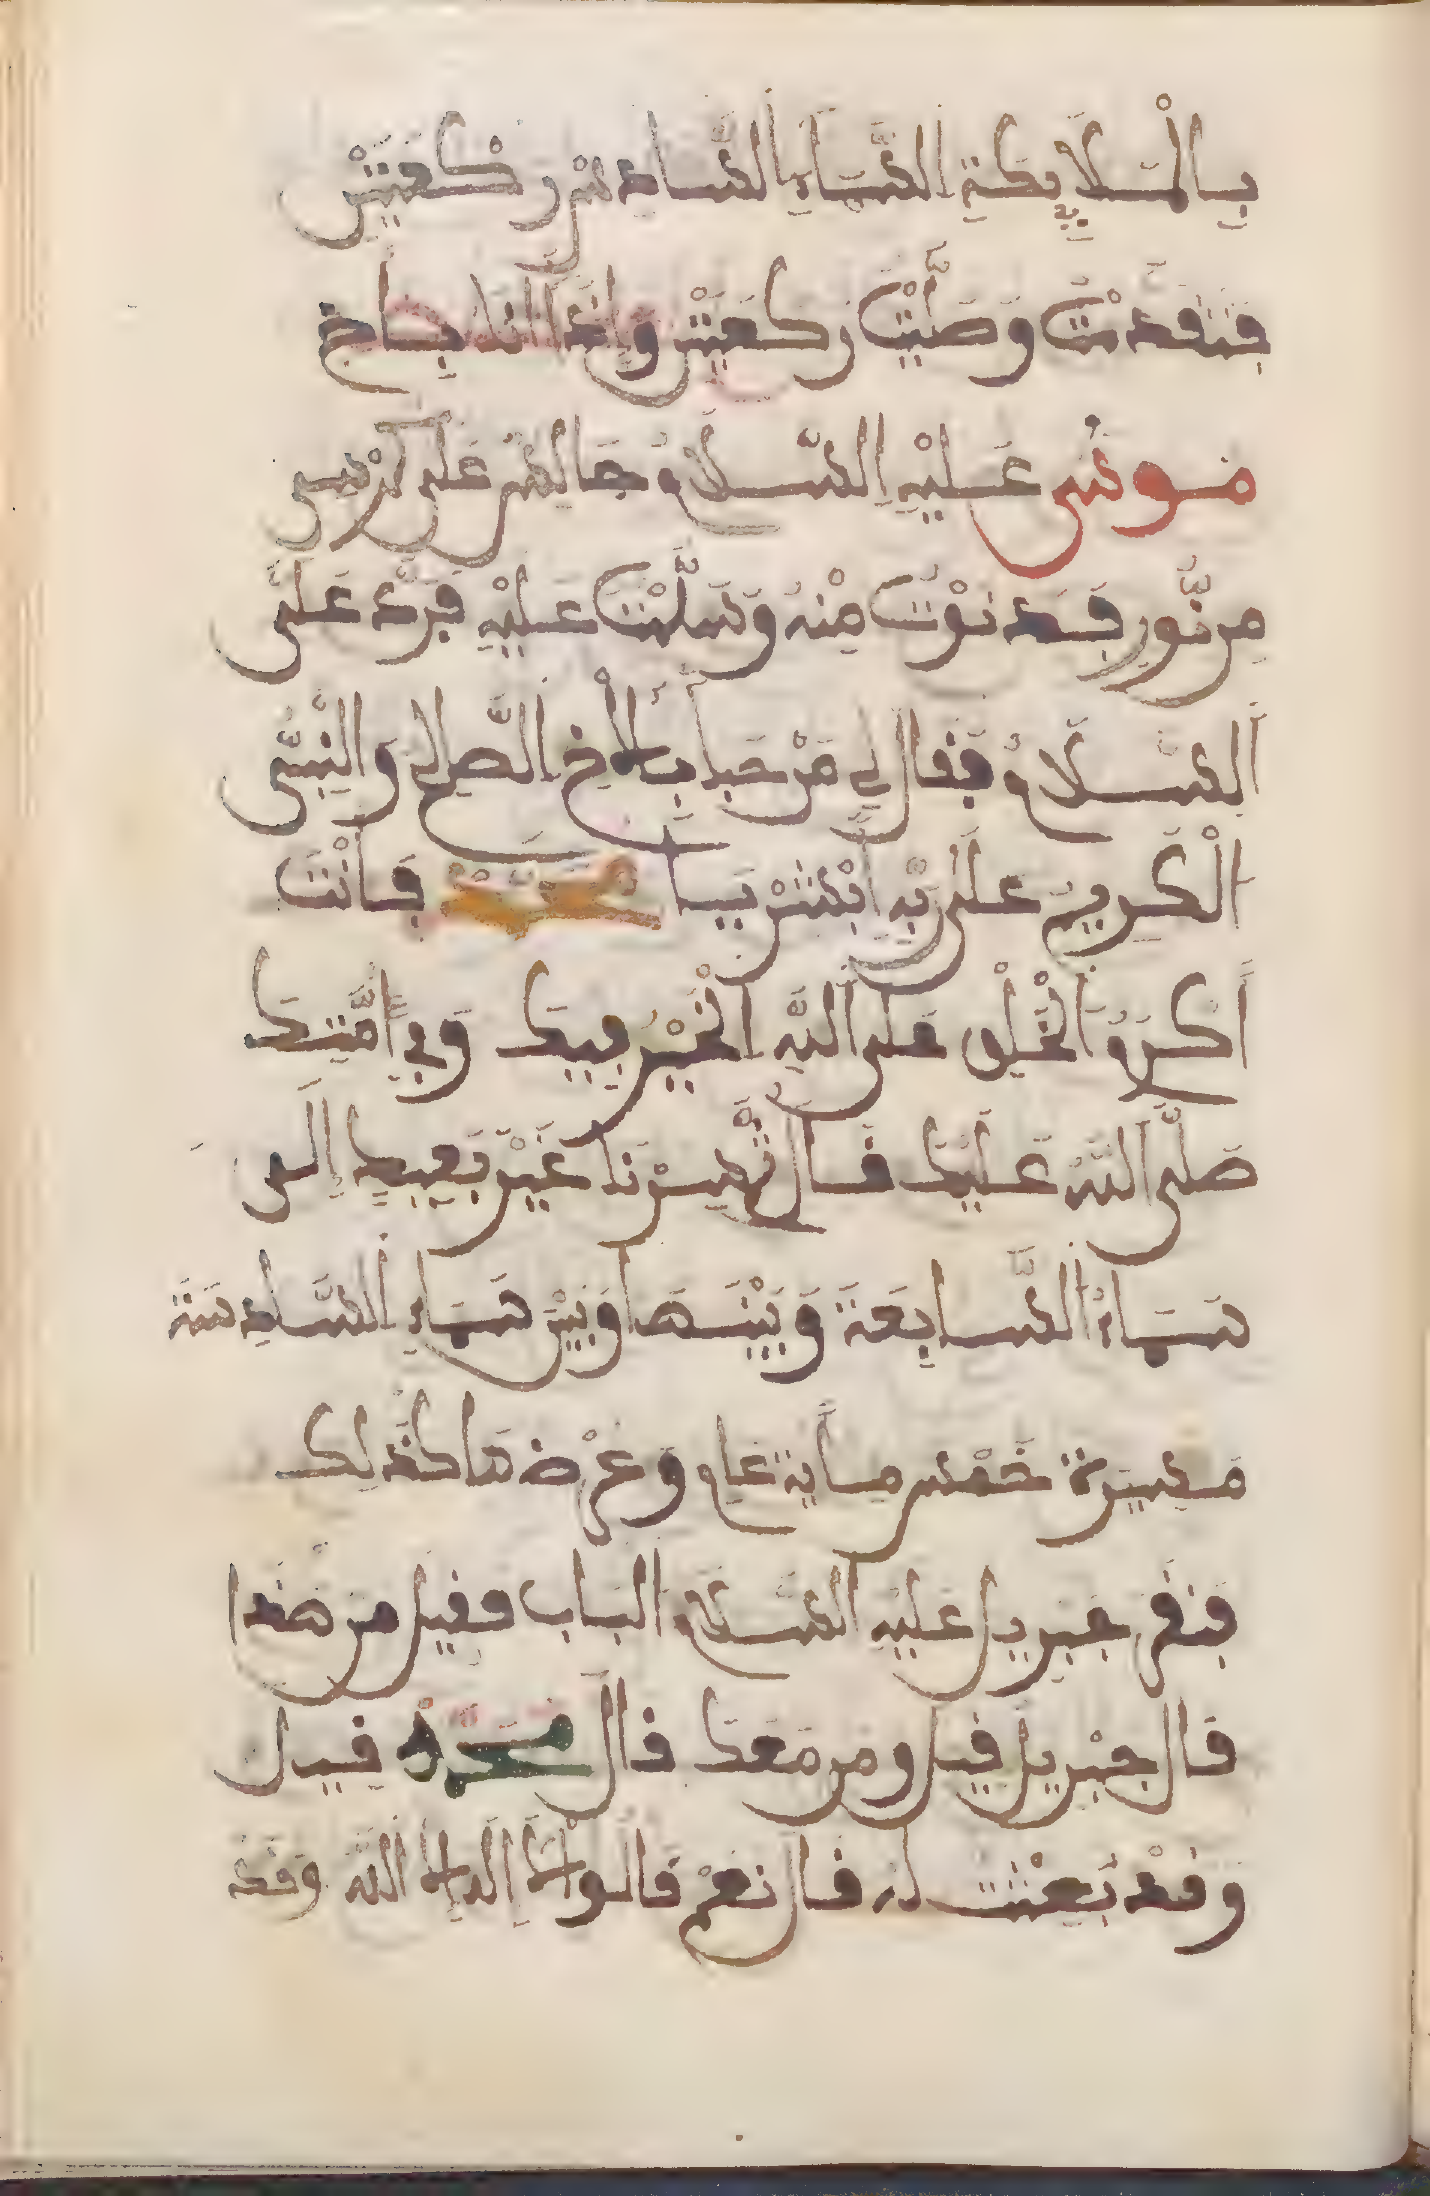 بِالْمَلَايِكَةِ السَّمَاءِ السَّادِسِ رَكْعَتَيْنِ
فَتَقَدَّمْتُ وَصَلَّيْتُ رَكْعَتَيْنِ وَإِذَا أَنَا بِأَخِ
مُوسَى عَلَيْهِ السَّلَامُ جَالِسٌ عَلَى كُرْسِي
مِن نُّورٍ فَدَنَوْتُ مِنْهُ وَسَلَّمْتُ عَلَيْهِ فَرَدَّ عَلَيَّ
السَّلَامُ فَقَالَ لِي مَرْحَبًا بِالْأَخِ الصَّلِحِ وَالنَّبِيِّ
الْكَرِيمِ عَلَى رَبِّهِ أَبْشِرْ يَا مُحَمَّدْ فَأَنْتَ
أَكْرَمُ الْخَلْقِ عَلَى اللَّهِ الْخَيْرُ فِيكَ وَفِي أُمَّتِكَ
صَلَّى اللَّهُ عَلَيْكَ قَالَ ثُمَّ سِرْنَا غَيْرَ بَعِيدٍ إِلَى
سَمَاءِ السَّابِعَةَ وَبَيْنَهَا وَبَيْنَ سَمَاءِ السَّادِسَةَ
مَسِيرَةُ خَمْسِ مِأْيَةِ عَامٍ وَعَرْضُهَا كَذَلِكَ
فَنَقَرَ جِبْرِيلُ عَلَيْهِ السَّلَامُ الْبَابَ فَقِيلَ مَن هَذَا
قَالَ جِبْرِيلُ قِيلَ وَمَن مَّعَكَ قَالَ مُحَمَّدٌ قِيلَ
وَقَدْ بُعِثْتَ لَهُ قَالَ نَعَمْ قَالُوا لَا إِلَهَ إِلَّا اللَّهُ وَقَدْ